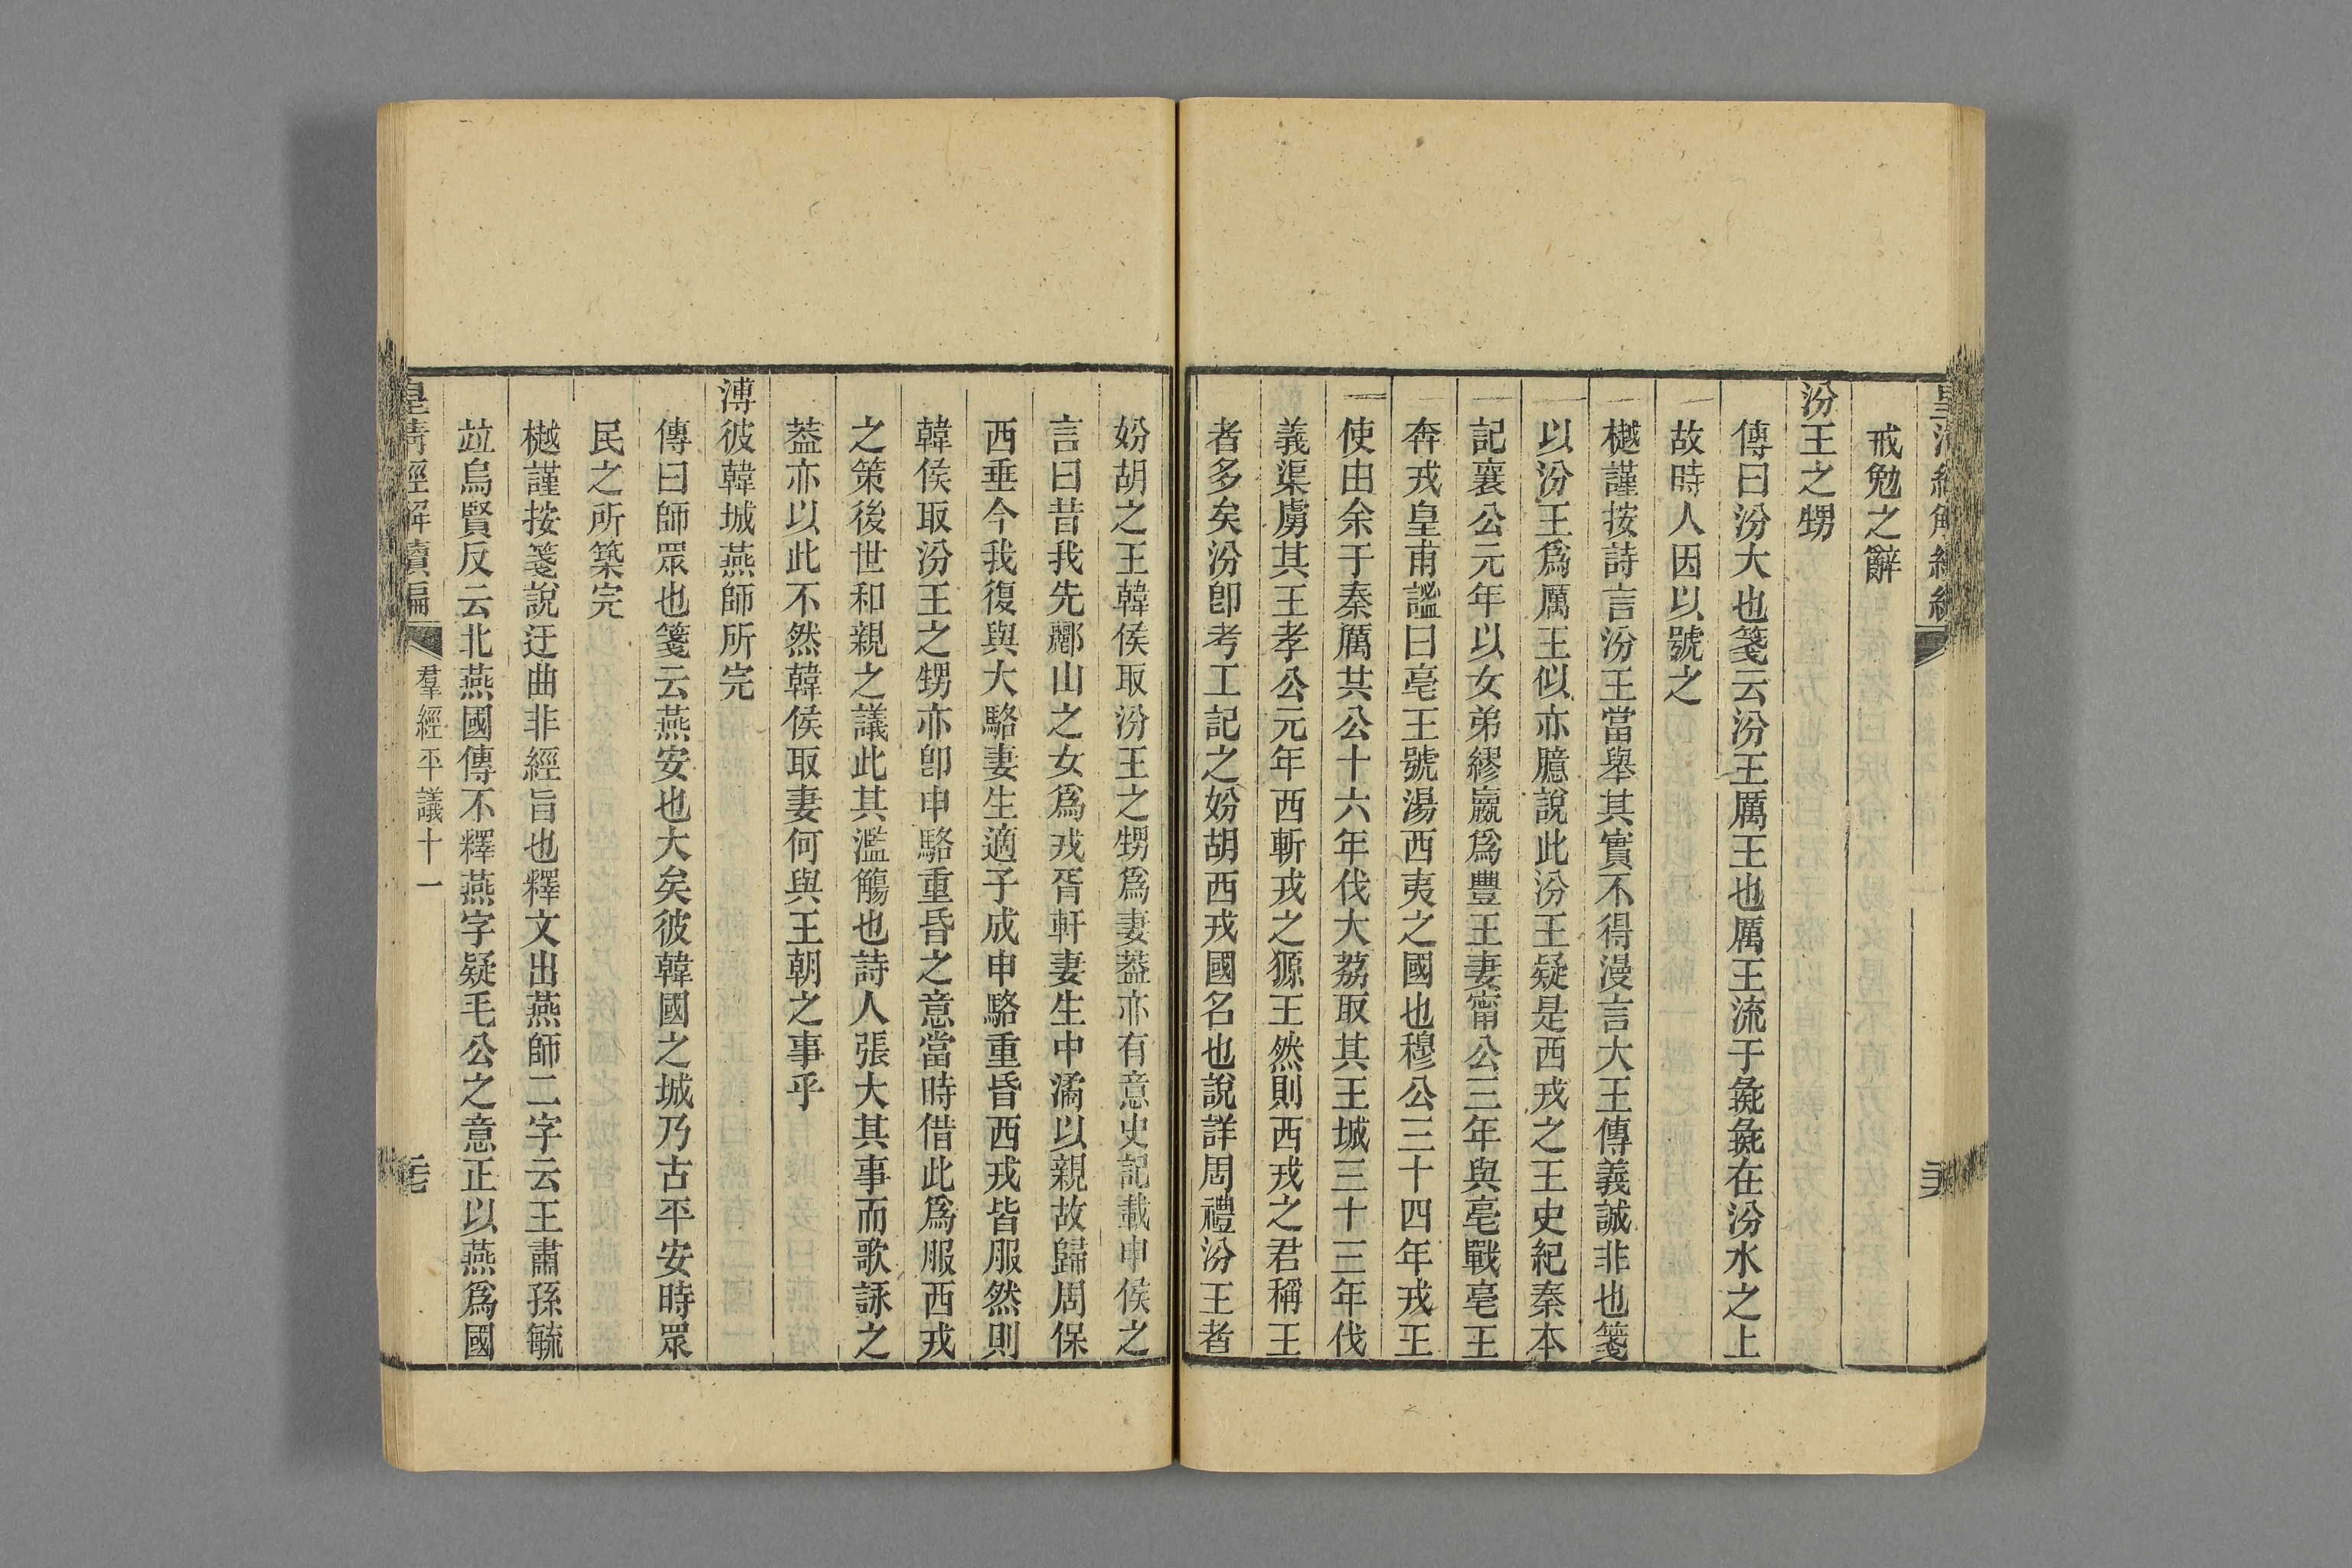 戒勉之辭
汾王之甥
傳曰汾大也箋云汾王厲王也厲王流于彘彘在汾水之上
故時人因以號之
樾謹按詩言汾王當舉其實不得漫言大王傳義誠非也箋
以汾王爲厲王似亦臆說此汾王疑是西戎之王史紀秦本
記襄公元年以女弟繆嬴爲豐王妻甯公三年與亳戰亳王
奔戎皇甫謐曰亳王號湯西夷之國也穆公三十四年戎王
使由余于秦厲共公十六年伐大荔取其王城三十三年伐
義渠虜其王孝公元年西斬戎之獂王然則西戎之君稱王
者多矣汾卽考工記之妢胡西戎國名也說詳周禮汾王者
妢胡之王韓侯取汾王之甥爲妻葢亦有意史記載申侯之
言曰昔我先酈山之女爲戎胥軒妻生中潏以親故歸周保
西垂今我復與大駱妻生適子成申駱重昏西戎皆服然則
韓侯取汾王之甥亦卽申駱重昏之意當時借此爲服西戎
之策後世和親之議此其濫觴也詩人張大其事而歌詠之
葢亦以此不然韓侯取妻何與王朝之事乎
溥彼韓城燕師所完
傳曰師眾也箋云燕安也大矣彼韓國之城乃古平安時眾
民之所築完
樾謹按箋說迂曲非經旨也釋文出燕師二字云王肅孫毓
竝烏賢反云北燕國傳不釋燕字疑毛公之意正以燕爲國
皇清經解續編
羣經平議十一